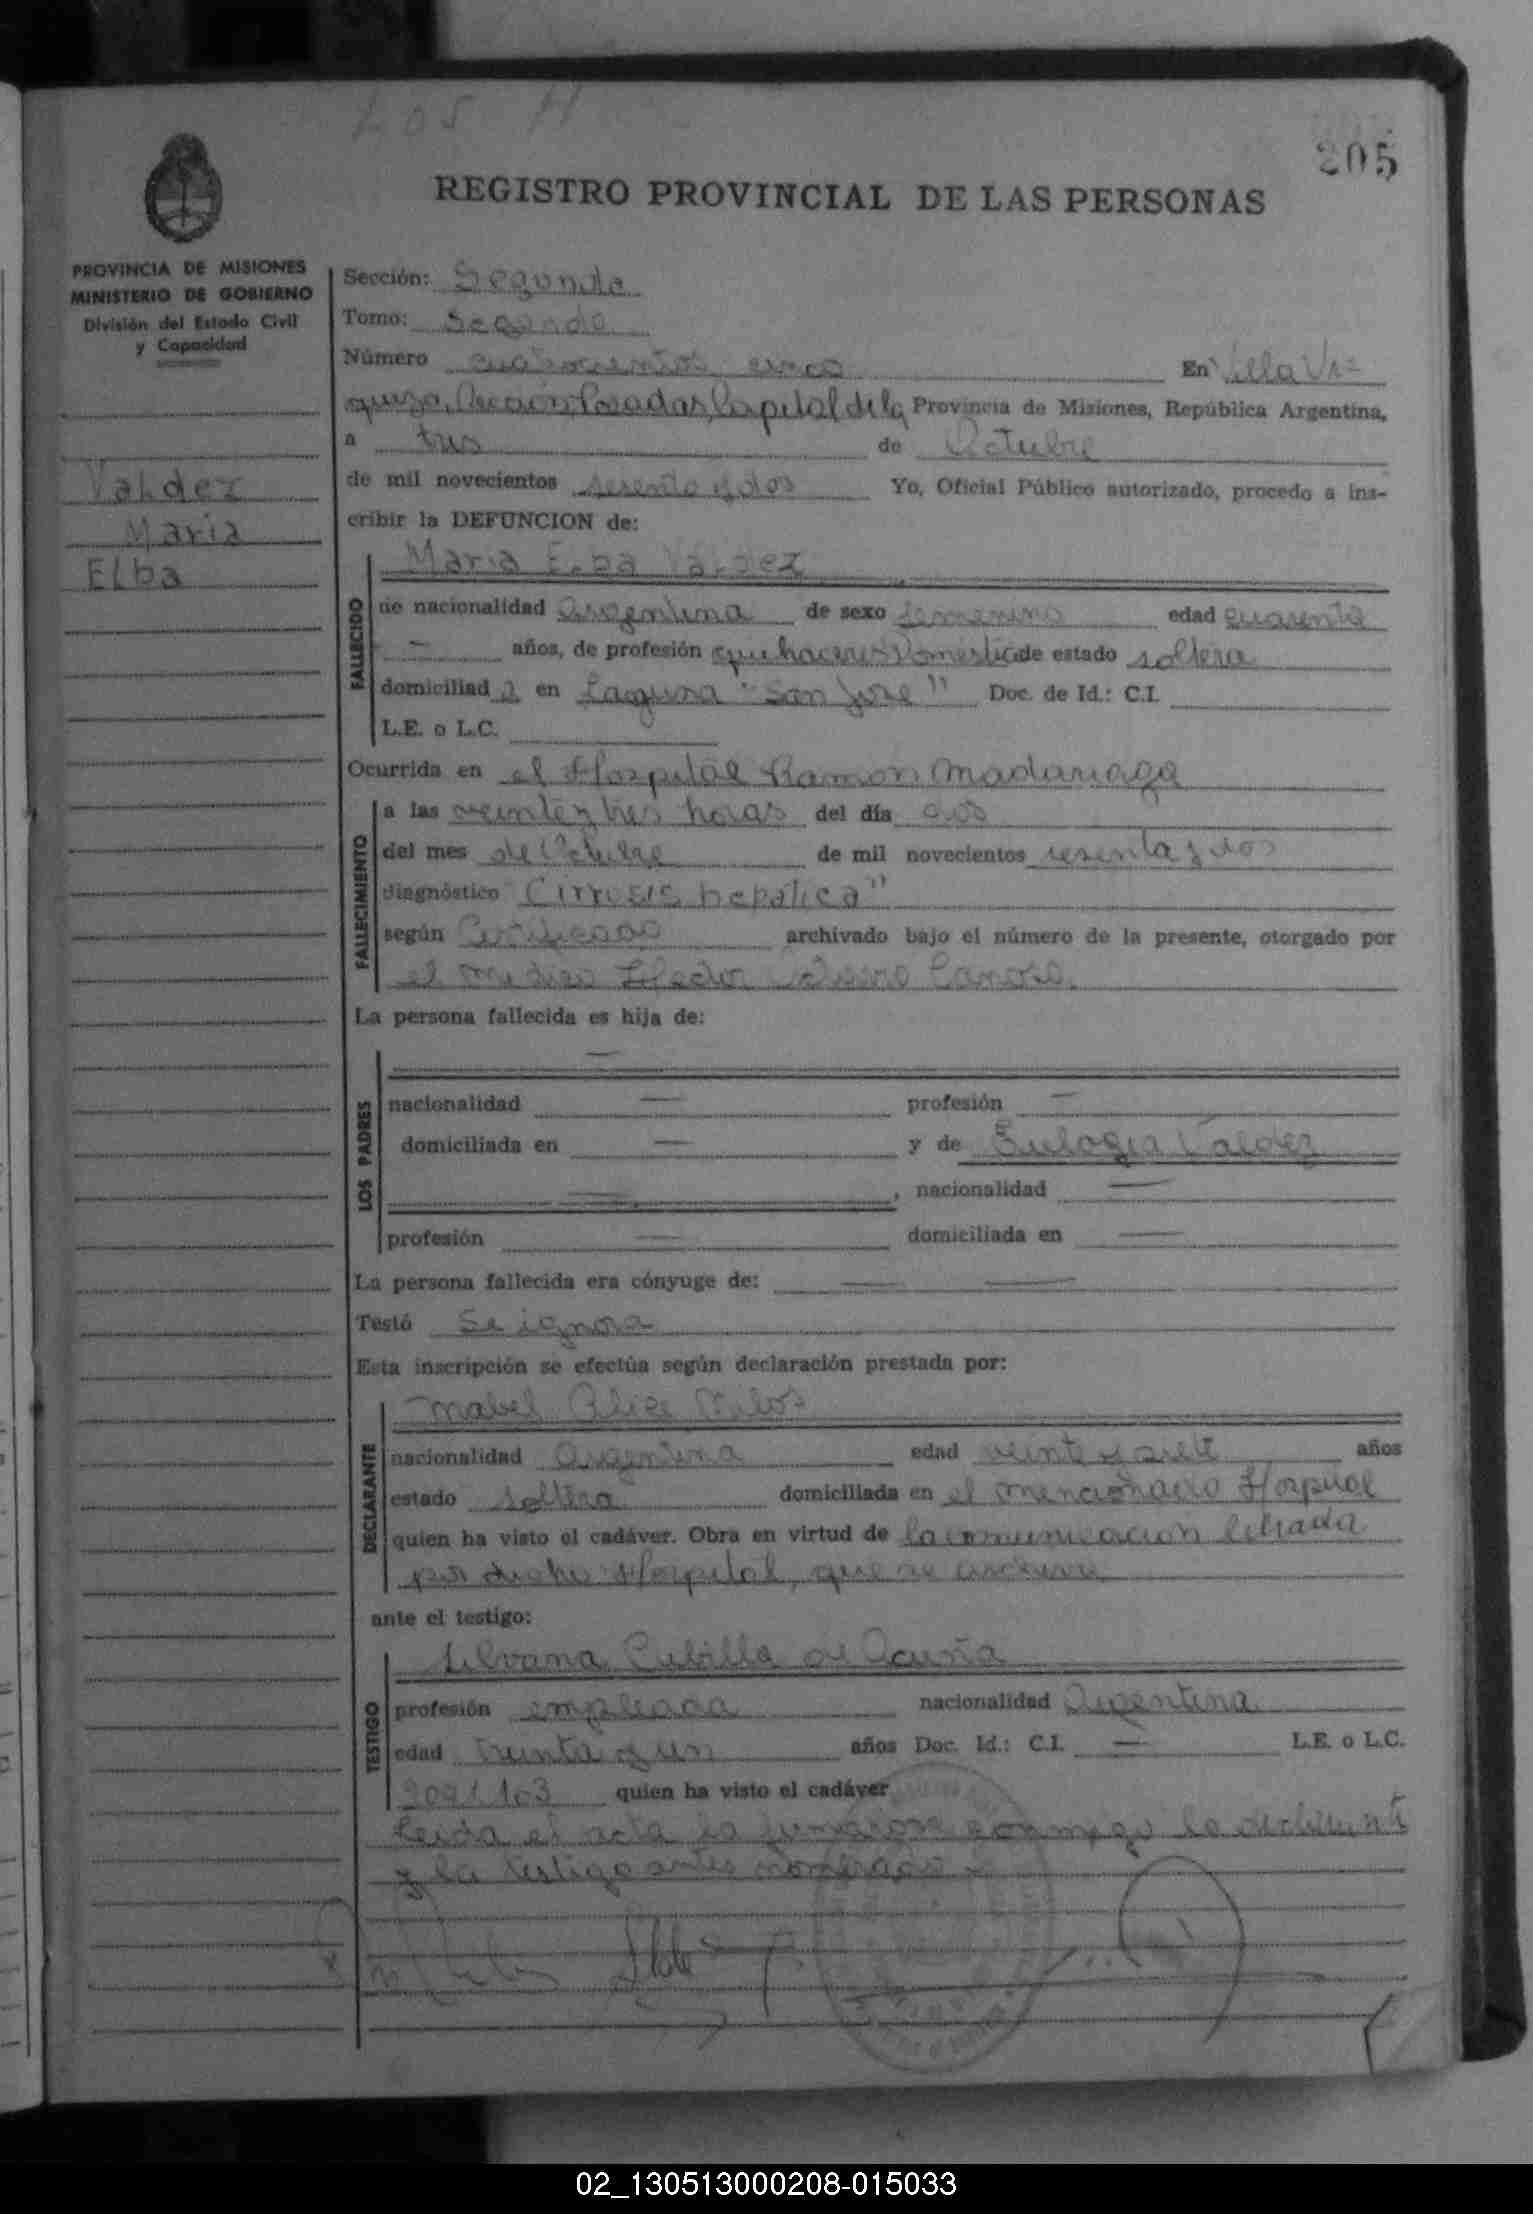 405
205
REGISTRO PROVINCIAL DE LAS PERSONAS
PROVINCIA DE MISIONES
MINISTERIO DE GOBIERNO
División del Estado Civil
y Capacidad
Valdez
Maria
Elba
Sección: Segunda
Tomo: Segundo
Número cuatrocientos cinco En Villa Urquiza, Sección Posadas, Capital de la Provincia de Misiones, República Argentina,
a tres de Octubre
de mil novecientos sesenta y dos Yo, Oficial Público autorizado, procedo a ins-
cribir la DEFUNCION de:
FALLECIDO
Maria Elba Valdez
de nacionalidad Argentina de sexo femenino edad cuarenta
— años, de profesión quehaceres Domésticos de estado soltera
domiciliad a en Laguna "San José" Doc. de Id.: C.I.
L.E. o L.C.
Ocurrida en el Hospital Ramón Madariaga
FALLECIMIENTO
a las veintey tres horas del día dos
del mes de Octubre de mil novecientos sesenta y dos
diagnóstico "Cirrosis hepatica"
según Certificado archivado bajo el número de la presente, otorgado por
el medico Hector
La persona fallecida es hija de:
LOS PADRES
—
nacionalidad — profesión —
domiciliada en — y de Eulogia Valdez
—, nacionalidad —
profesión — domiciliada en —
La persona fallecida era cónyuge de: — —
Testó Se ignora
Esta inscripción se efectúa según declaración prestada por:
DECLARANTE
Mabel Alice
nacionalidad Argentina edad veinte y siete años
estado soltera domiciliada en el mencionado Hospital
quien ha visto el cadáver. Obra en virtud de la comunicacion librada
por dicho Hospital, que se archiva
ante el testigo:
TESTIGO
Silvana Cubilla de Acuña
profesión empleada nacionalidad Argentina
edad treinta y un años Doc. Id.: C.I. — L.E. o L.C.
2091103 quien ha visto el cadáver
Leida el acta la firmaron conmigo la declarante
y la testigo antes nombrada
02_130513000208-015033